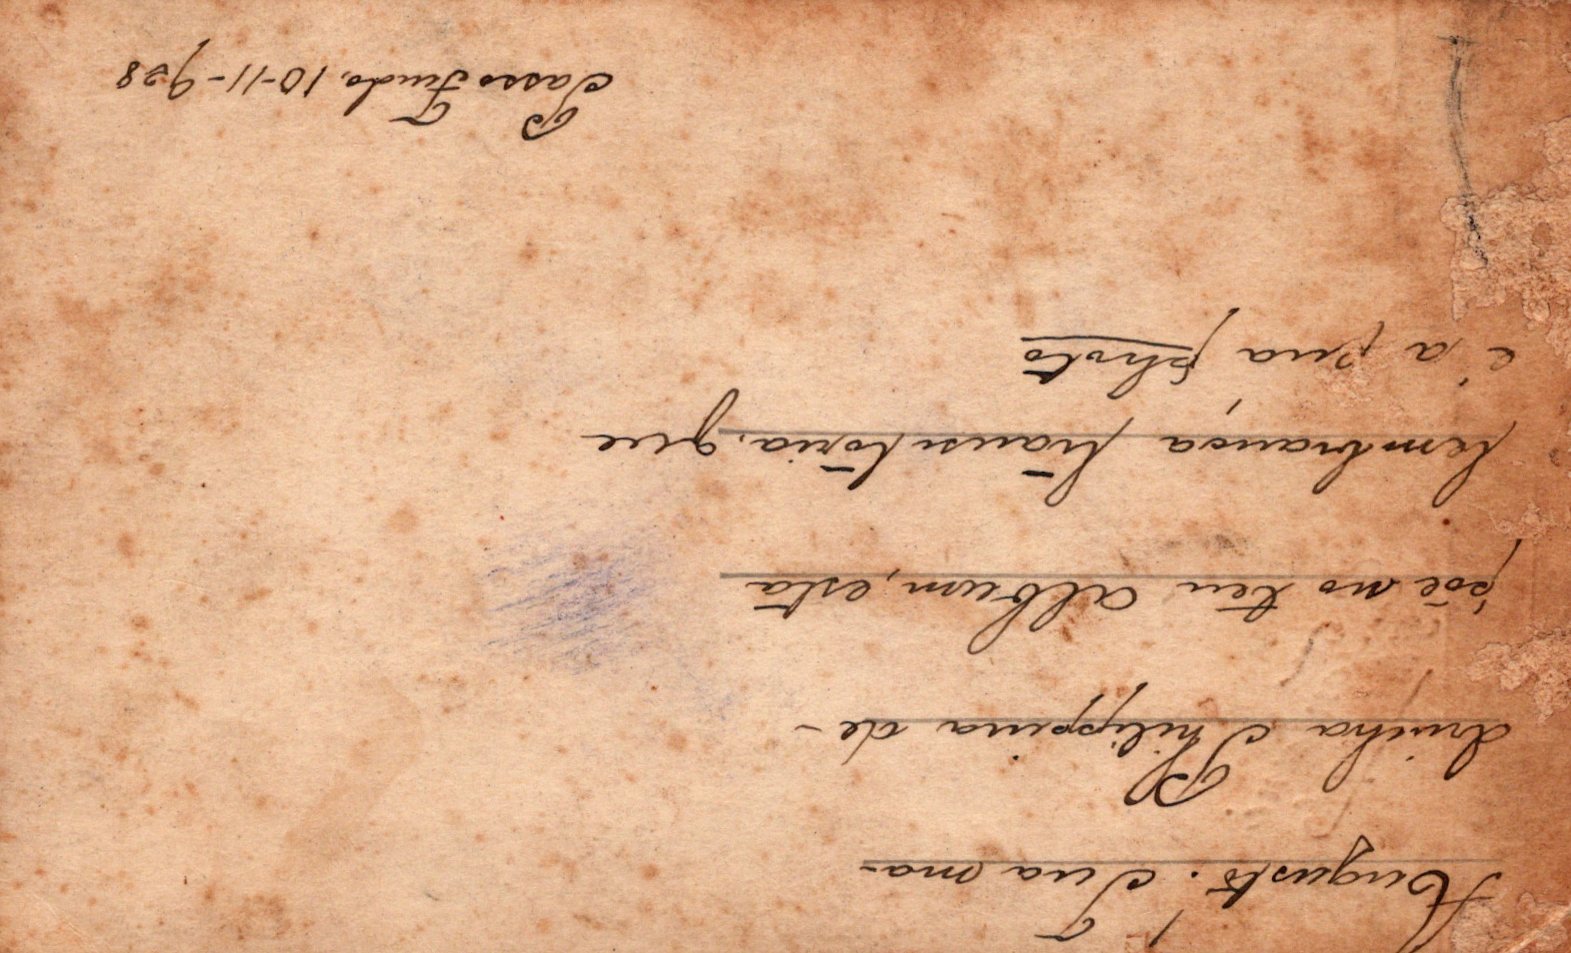 Augusto! Tua ma-
drinha Philippina de-
põe no teu album, esta
lembrança transitória, que
é a sua photo
Passo Fundo, 10-11-938